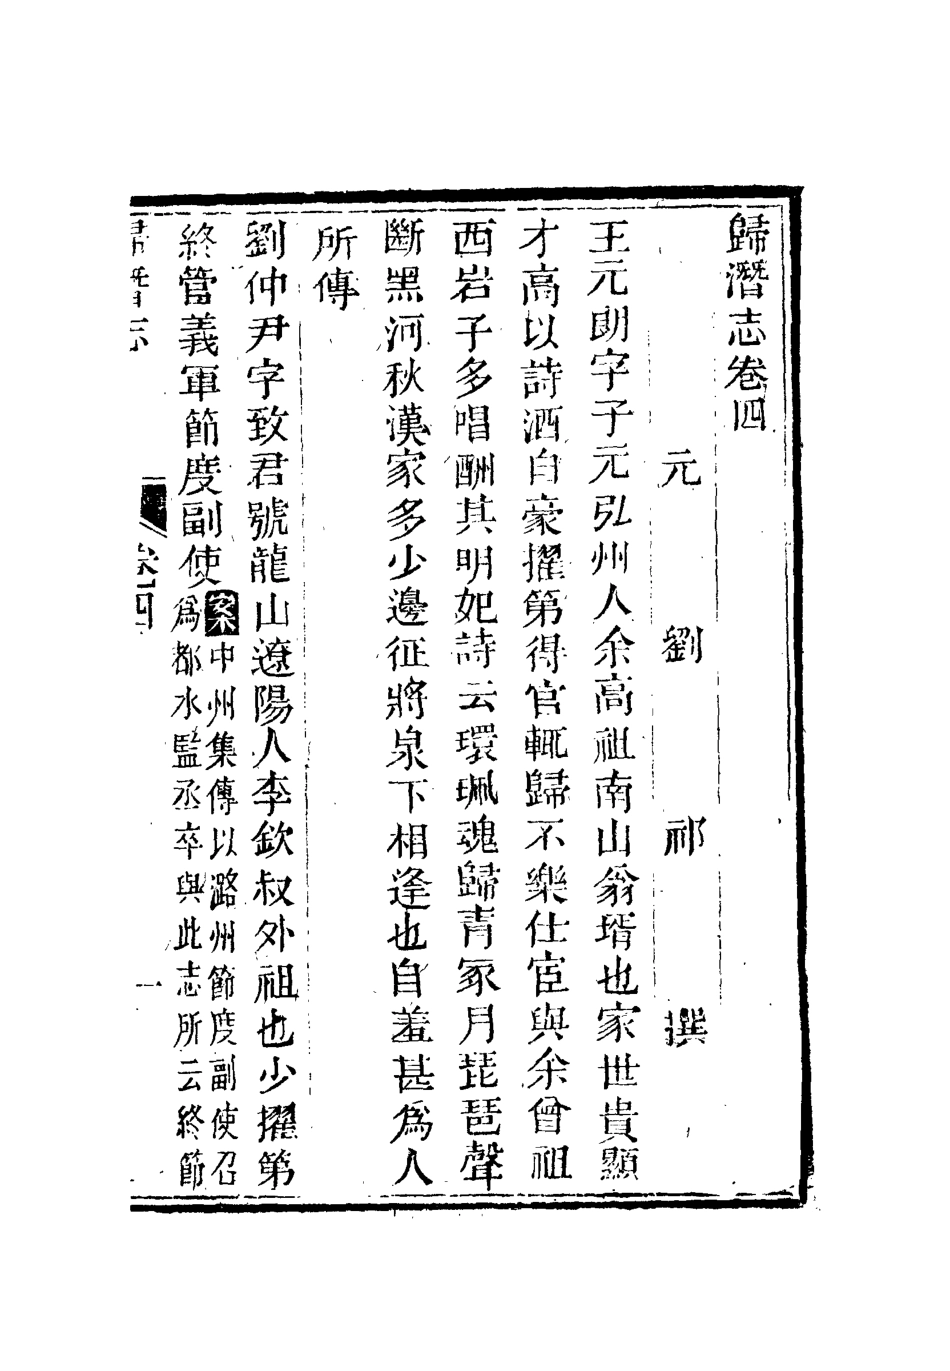 歸潛志卷四
元　劉　祁　撰
王元朗字子元弘州人余高祖南山翁壻也家世貴顯
才高以詩酒自豪擢第得官輒歸不樂仕宦與余曾祖
西岩子多唱酬其明妃詩云環珮魂歸青冢月琵琶聲
斷黑河秋漢家多少邊征將泉下相逢也自羞甚為人
所傳
劉仲尹字致君號龍山遼陽人李欽叔外祖也少擢第
終管義軍節度副使
案中州集傳以潞州節度副使召
為都水監丞卒與此志所云終節
歸潛志
卷四
一